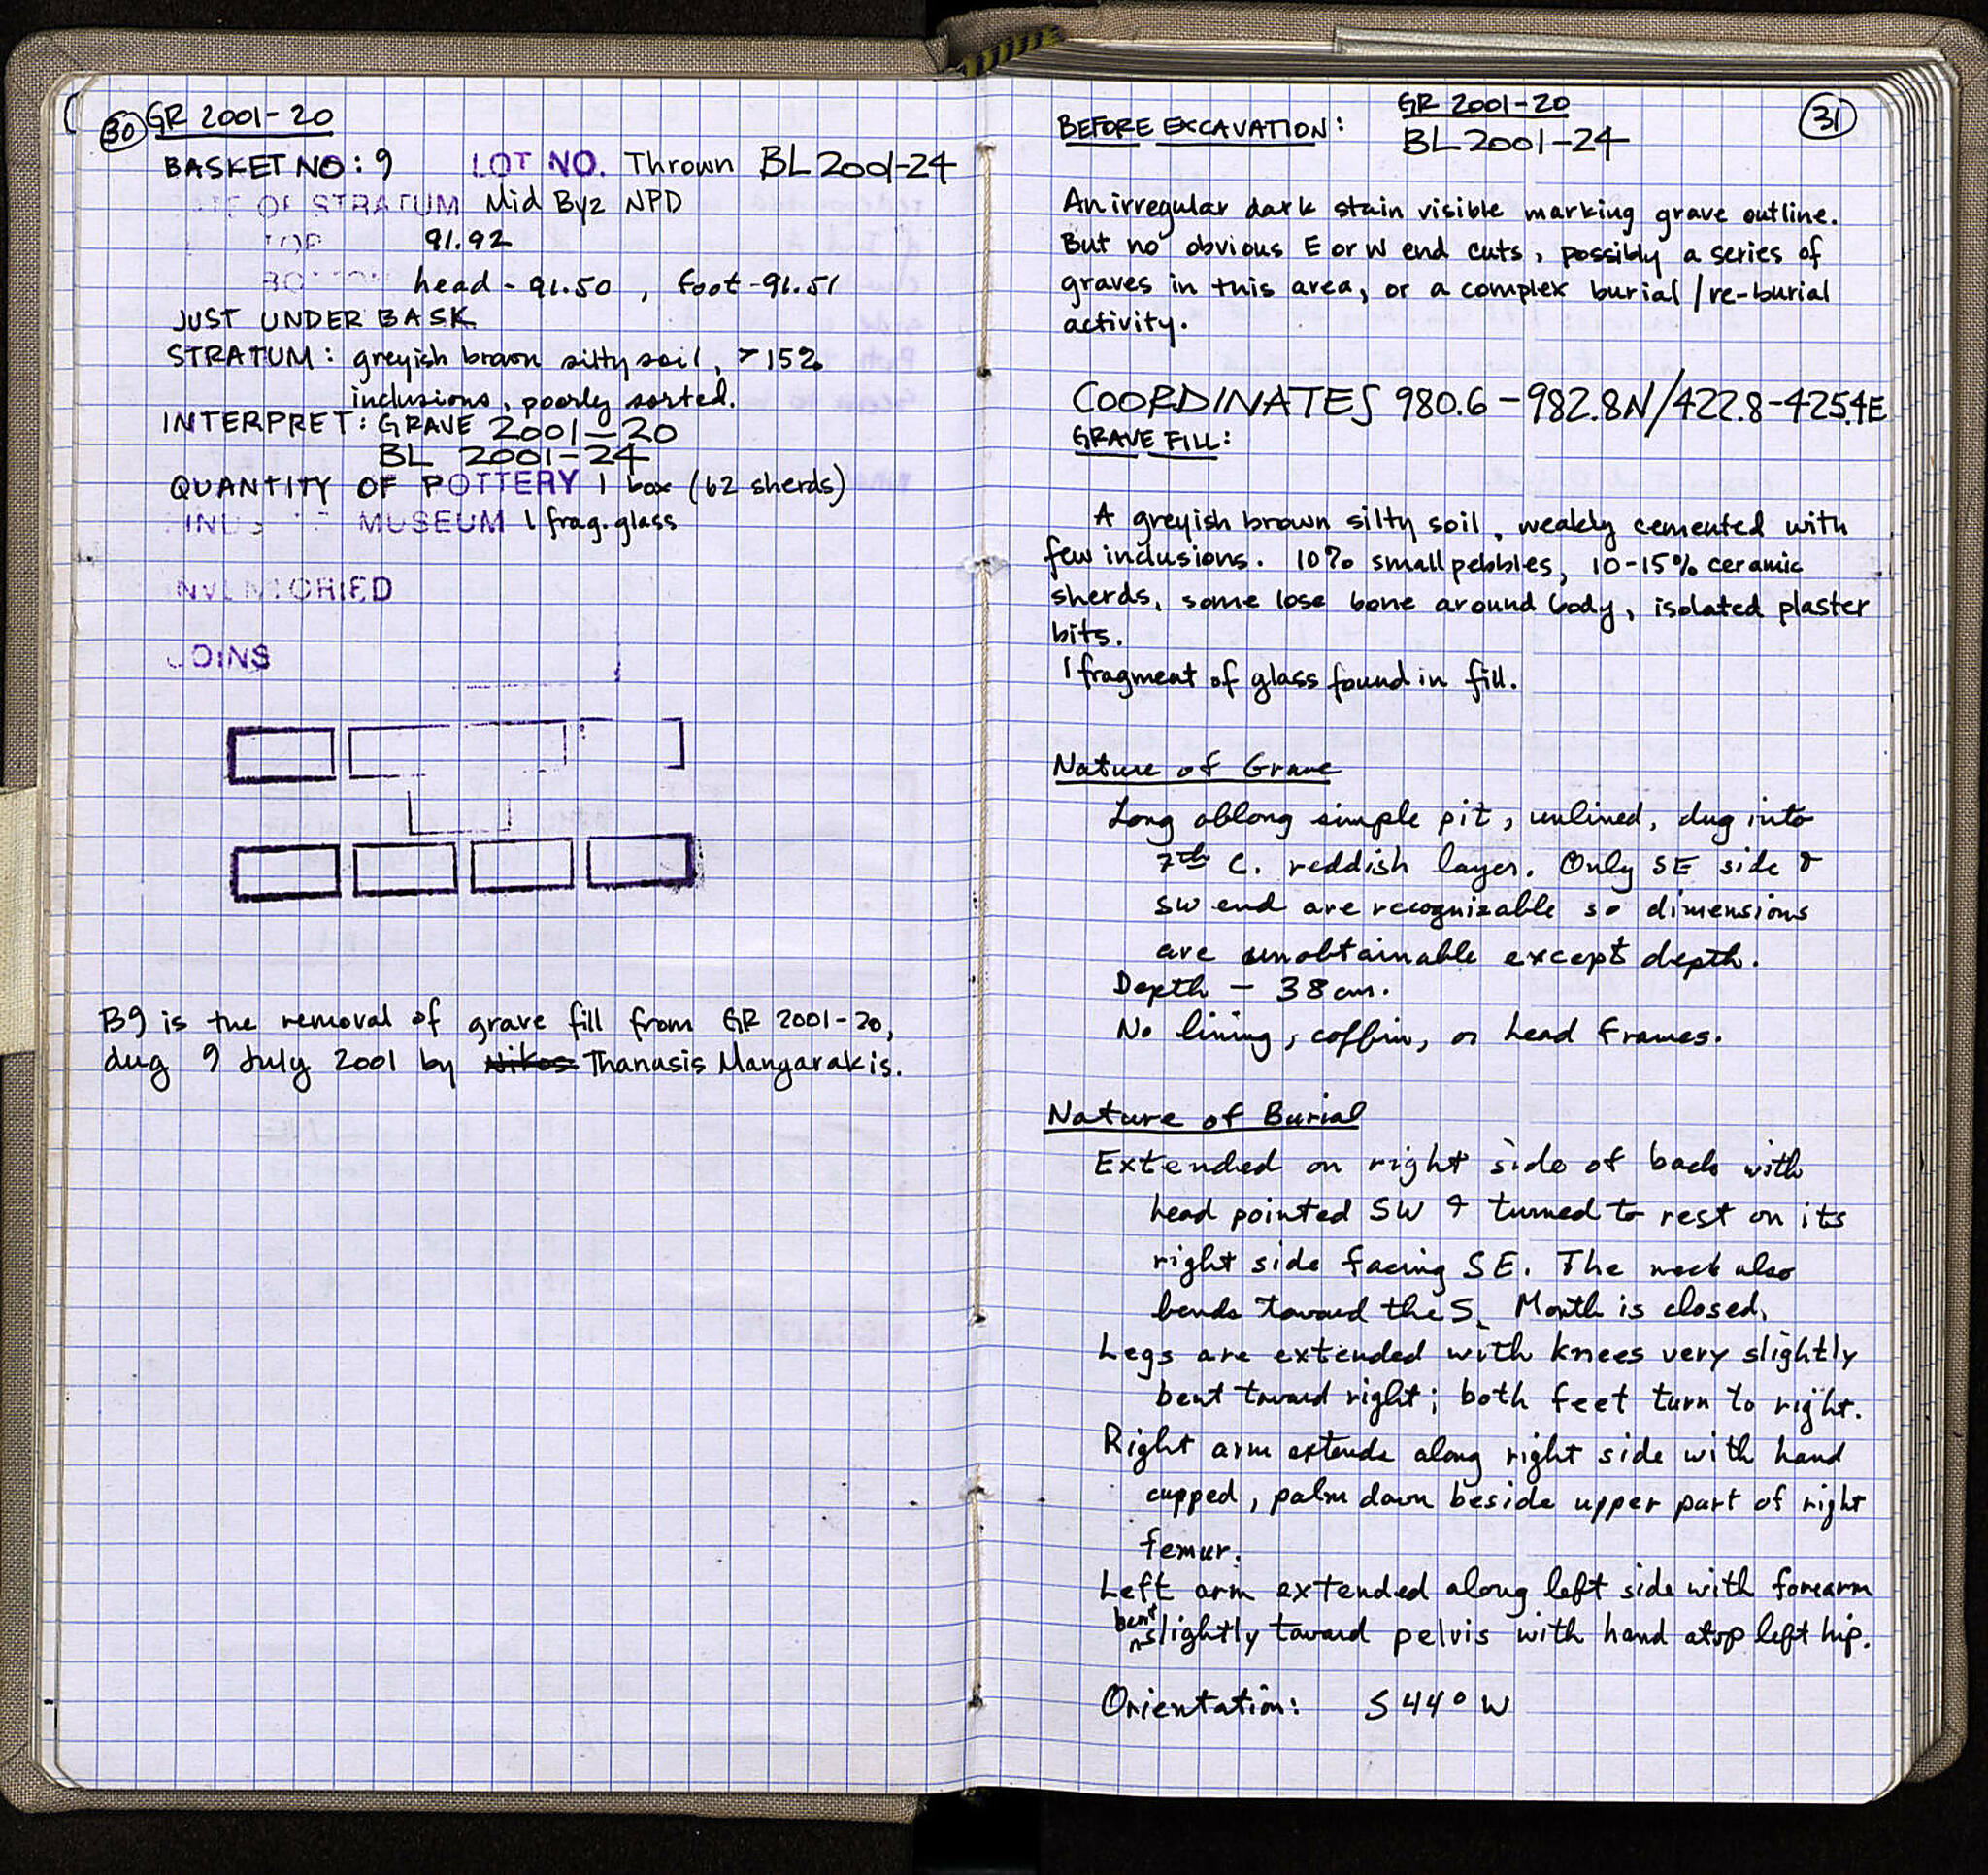 30 GR 2001-20
BASKET NO: 9 LOT NO. Thrown BL 2001-24
OF STRATUM Mid Byz NPD
TOP 91.92
head - 91.50, foot - 91.51
JUST UNDER BASK
STRATUM: greyish brown silty soil, > 15%
inclusions, poorly sorted.
INTERPRET: GRAVE 2001-20
BL 2001-24
QUANTITY OF POTTERY 1 box (62 sherds)
MUSEUM 1 frag. glass
JOINS
B9 is the removal of grave fill from GR 2001-20,
dug 9 July 2001 by Nikos Thanasis Mangarakis.
GR 2001-20 31
BEFORE EXCAVATION: BL 2001-24
An irregular dark stain visible marking grave outline.
But no obvious E or W end cuts, possibly a series of
graves in this area, or a complex burial / re-burial
activity.
COORDINATES 980.6-982.8N/422.8-425.4E
GRAVE FILL:
A greyish brown silty soil, weakly cemented with
few inclusions. 10% small pebbles, 10-15% ceramic
sherds, some lose bone around body, isolated plaster
bits.
1 fragment of glass found in fill.
Nature of Grave
Long oblong simple pit, unlined, dug into
7th C. reddish layer. Only SE side &
SW end are recognizable so dimensions
are unobtainable except depth.
Depth - 38 cm.
No lining, coffin, or head frames.
Nature of Burial
Extended on right side of back with
head pointed SW & turned to rest on its
right side facing SE. The neck also
bends toward the S. Mouth is closed.
Legs are extended with knees very slightly
bent toward right; both feet turn to right.
Right arm extends along right side with hand
cupped, palm down beside upper part of right
femur.
Left arm extended along left side with forearm
bent slightly toward pelvis with hand atop left hip.
Orientation: S 44° W